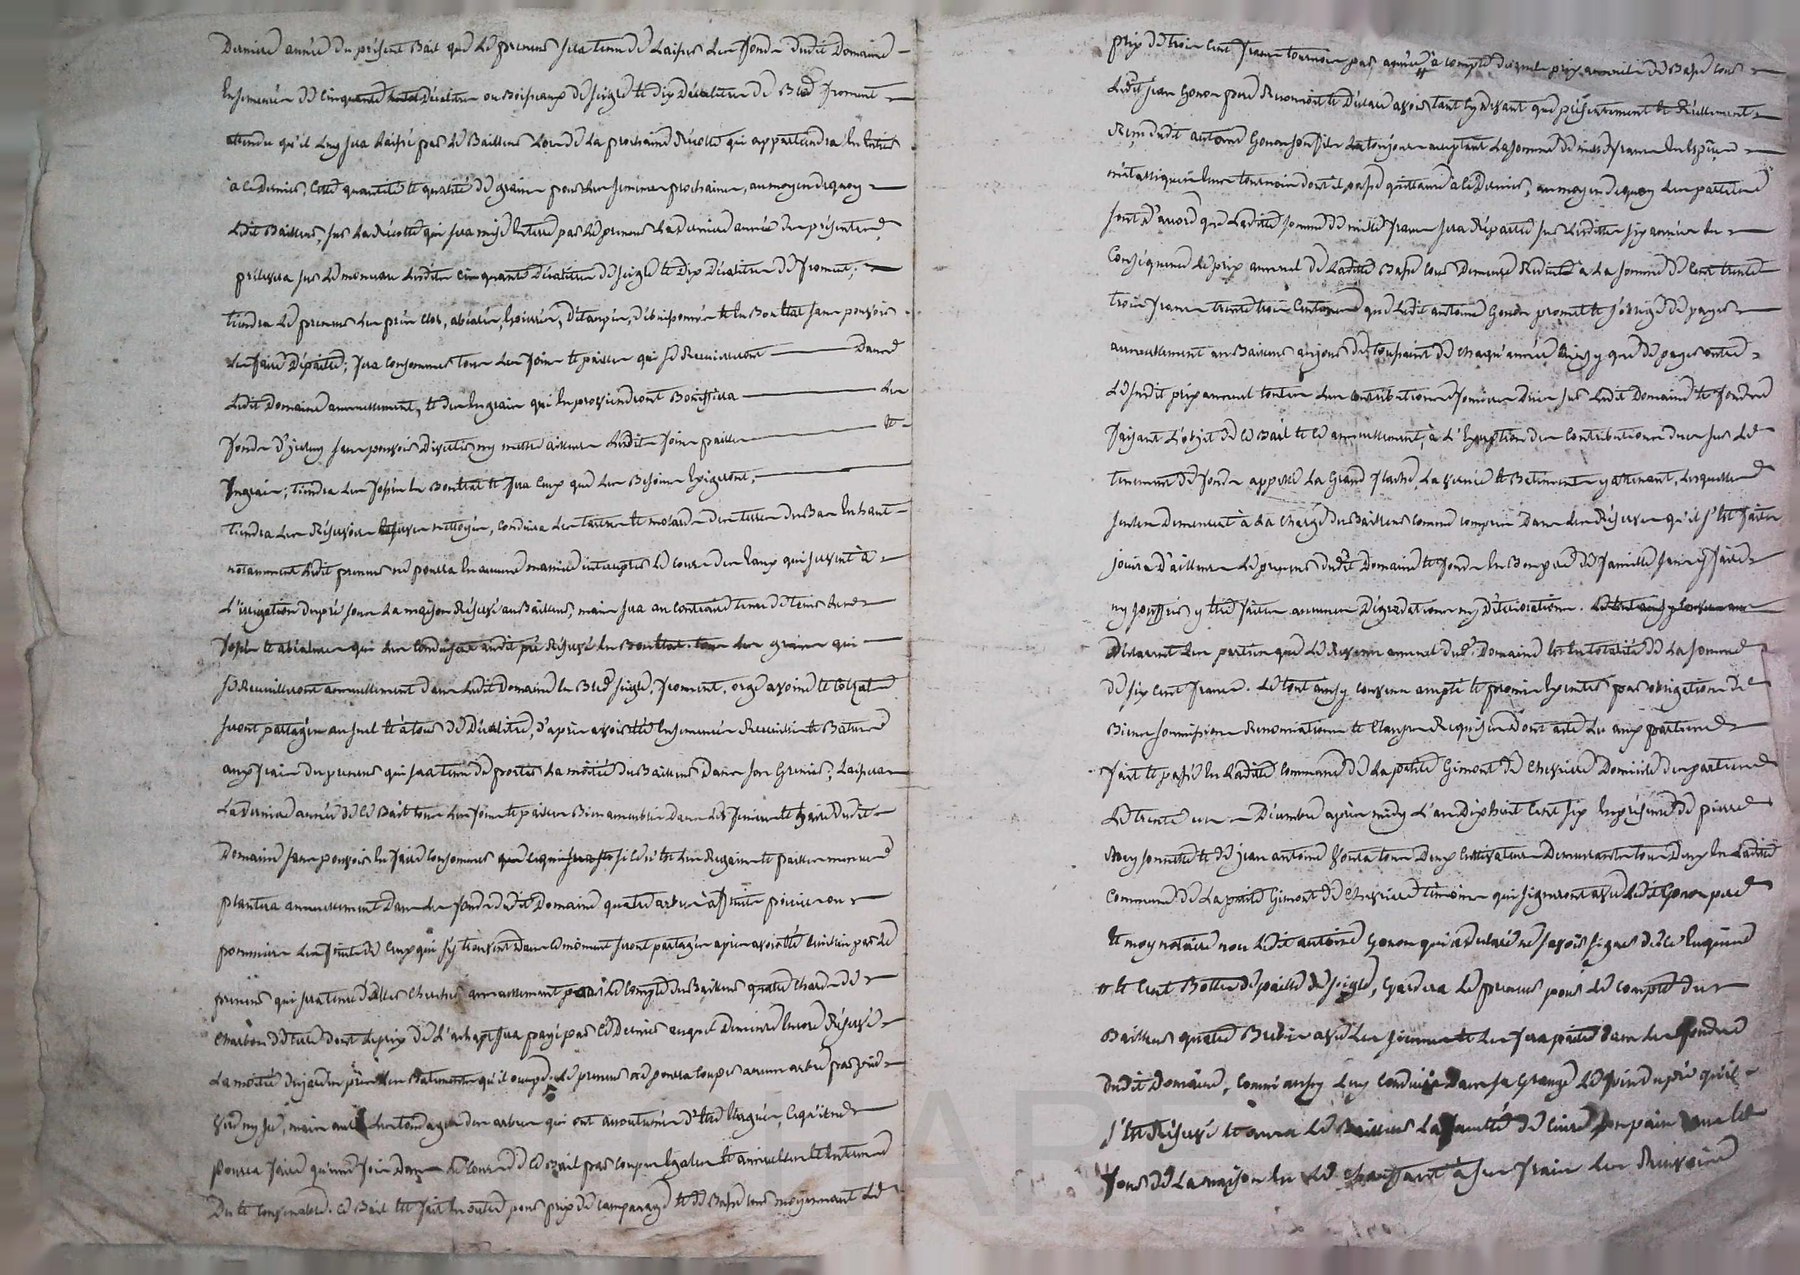 Derniere année du présent Bail que Le preneur sera tenu de Laisser Les fonds dudit Domaine
Ensemencés de cinquante Décalitres ou Boisseaux de seigle et dix Décalitres de Bled froment
attendu qu'il Luy sera Laissé par Le Bailleur Lors de La prochaine Récolte qui appartiendra En Entier
à ce dernier, Cette quantité et qualité de grains pour Les semences prochaines, au moyen de quoy
Ledit Bailleur, sur La Récolte qui sera mise En terre par Le preneur La derniere année des présentes,
prélevera sur Le monceau Lesdits cinquante Décalitres de seigle et Dix Décalitres de froment;
tiendra Le preneur Les prés clos, abéalés, Epierrés, D'étaupés, D'ébuissonnés et En Bon Etat sans pouvoir
Les faire Dépaitre; sera consommer tous Les foins et pailles qui se Recueilleront Dans
Ledit Domaine annuellement, et des Engrais qui En proviendront Bonifiera Les
fonds D'iceluy sans pouvoir Divertir ny mettre ailleurs Lesdits foins pailles et
Engrais; tiendra Les fossés En Bon Etat et sera Ceux que Les Besoins Exigeront,
tiendra Les Réservoirs nettoyés, conduira Les terres et molards des terres du Bas En haut
notamment Ledit preneur ne pourra En aucune maniere interrompre Le cours des Eaux qui servent à
L'irrigation du pré sous La maison Réservé au Bailleur, mais sera au contraire tenu de tenir
fossés et abéalures qui Les conduisent audit pré Réservé En Bon Etat. tous Les grains qui
se Recueilleront annuellement dans Ledit Domaine En Bled seigle, froment, orge avoine et Colzat
seront partagés au suel et à tous De Décalitre, d'après avoir été Ensemencés Recueillis et Batus
aux frais du preneur qui sera tenu de porter La moitié du Bailleur Dans son Grenier; Laissera
La derniere année de ce Bail tous Les foins et pailles Bien dans Les feniers dudit
Domaine sans pouvoir En faire consommer si ce n'est Les Regains et pailles menues
plantera annuellement Dans Les fonds dudit Domaine quatre arbres à fruits poiriers ou
pommiers Les fruits de Ceux qui s'y trouvent dans ce moment seront partagés après avoir été Cueillis par Le
preneur qui sera tenu d'aller Chercher annuellement pour Le Compte du Bailleur quatre Chars de
Charbon de terre dont Le prix de L'achapt sera payé par ce Dernier auquel Demeure Encore Réservé
La moitié du jardin près Les Batiments qu'il occupe. Le preneur ne pourra couper aucun arbre par pied
Vif ny sec, mais aura Les tondages des arbres qui ont accoutumé D'être Elagués, Ce qu'il ne
pourra faire qu'une fois Dans Le Cours de ce Bail par coupes Egales et annuelles Et En tems
Du et convenable. ce Bail est fait En outre pour prix de campanage et de Basse cour moyennant Le
prix de trois Cent francs tournois par année, à compte duquel prix annuel de Basse cour
Ledit jean Gonon pere Reconnoit et Déclare avoir tant cy devant que présentement et Réellement
Reçu dudit antoine Gonon son fils toujours acceptant La somme de mille francs En Espèces
métalliques Ecus tournois dont il passe quittance à ce Dernier, au moyen de quoy Les parties
sont d'accord que Ladite somme de mille francs sera Répartie sur Lesdites six années En
Conséquence Le prix annuel de Ladite Basse Cour Demeure Réduite à La somme de Cent trente
trois francs trente trois Centimes que Ledit antoine Gonon promet et s'oblige de payer
annuellement au Bailleur au jour de toussaint de chaqu'année, ainsy que de payer outre
Le susdit prix annuel toutes Les contributions foncieres Dües sur Ledit Domaine et fonds
faisant L'objet de ce Bail et ce annuellement, à L'exception des Contributions dues sur Le
tenement de fonds appellé La Grand et Batiments y attenant, Lesquelles
seules Demeurent à La charge du Bailleur comme compris Dans Les Réserves qu'il s'est faites
jouira d'ailleurs Le preneur dudit Domaine et fonds En Bon pere de famille sans y faire
ny souffrir y être faites aucunes Dégradations ny Détériorations.
Déclarent Les parties que Le Revenu annuel dudit Domaine Est En totalité de La somme
de six Cent francs. Le tout ainsy convenu accepté et promis Exécuter par obligation de
Biens soumissions Renonciations et Clauses Requises Dont acte Lu aux parties
fait et passé En Ladite Commune de La petite Gimont de Chevrieres Domicile des parties
Le trente un Décembre après midy L'an Dix huit Cent six En présence de pierre
et de jean antoine tous Deux Cultivateurs Demeurants tous Deux En Ladite
Commune de La petite Gimont de Chevrieres témoins qui signeront avec Ledit Gonon pere
Et moy notaire non Ledit antoine Gonon qui a déclaré ne savoir signer de ce Enquis
et Cent Bottes de paille de seigle, Gardera Le preneur pour Le compte du
Bailleur quatre Brebis avec Les siennes et Les fera paitre dans Les fonds
dudit Domaine, Comme aussy Luy conduira Dans sa Grange Le foin du pré qu'il
s'Est Réservé et aura Le Bailleur La faculté de Cuire son pain dans Le
four de La maison En Le chauffant à ses frais